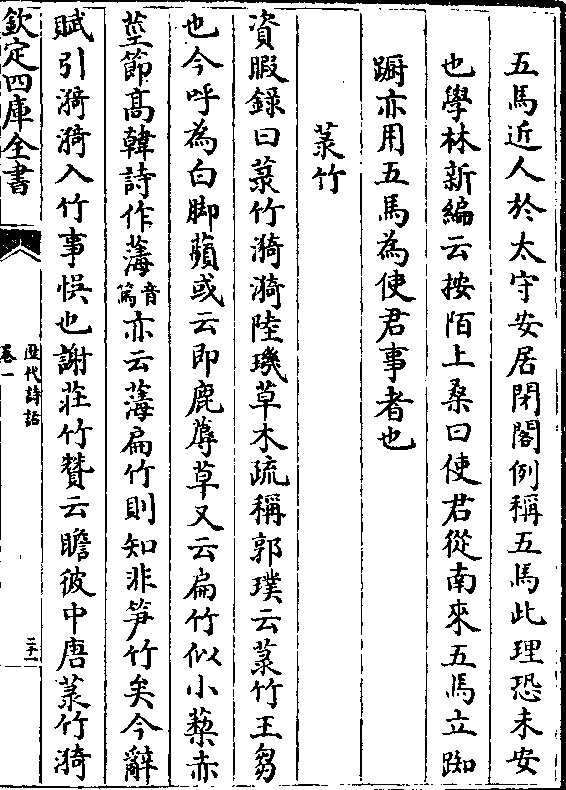 五馬近人於太守安居閉閣例稱五馬此理恐未安
也學林新編云按陌上桑曰使君從南來五馬立踟
蹰亦用五馬為使君事者也
菉竹
資暇錄曰菉竹漪漪陸璣草木疏稱郭璞云菉竹王芻
也今呼為白脚蘋或云即鹿蓐草又云扁竹似小藜赤
莖節髙韓詩作薄音篤亦云薄扁竹則知非笋竹矣今辭
賦引漪漪入竹事悞也謝莊竹贊云瞻彼中唐菉竹漪
欽定四庫全書
歴代詩話
卷一
二十一